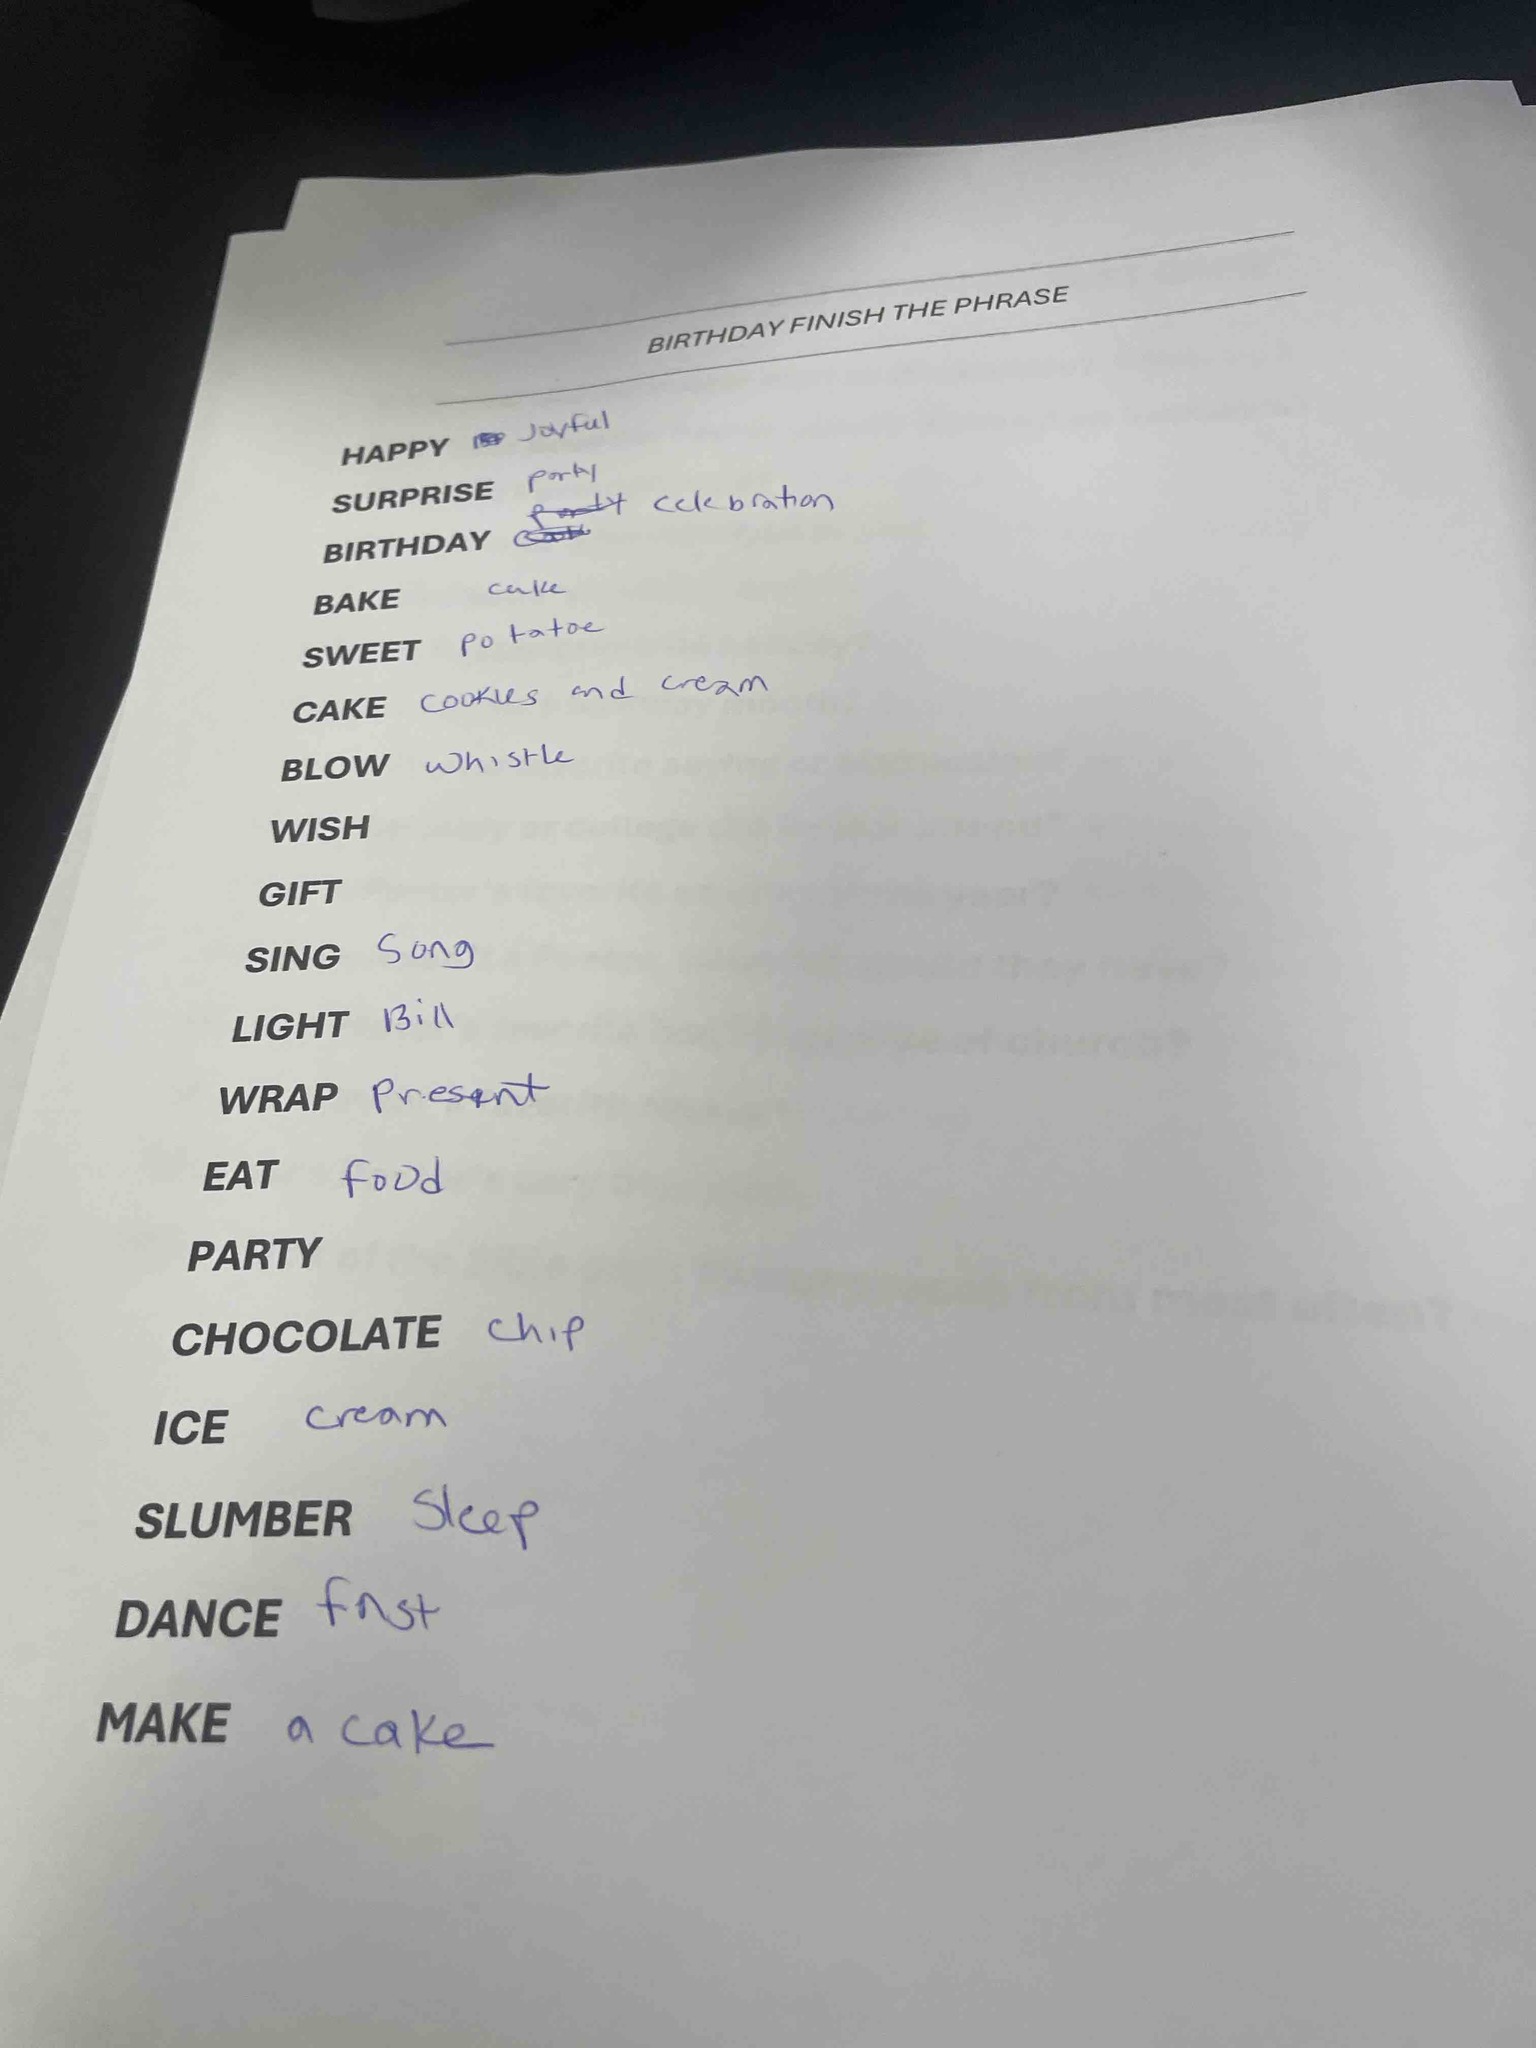 BIRTHDAY FINISH THE PHRASE
HAPPY Joyful
SURPRISE party
BIRTHDAY party celebration
BAKE cake
SWEET potatoe
CAKE cookies and cream
BLOW whistle
WISH
GIFT
SING Song
LIGHT Bill
WRAP Present
EAT food
PARTY
CHOCOLATE chip
ICE cream
SLUMBER Sleep
DANCE fast
MAKE a cake